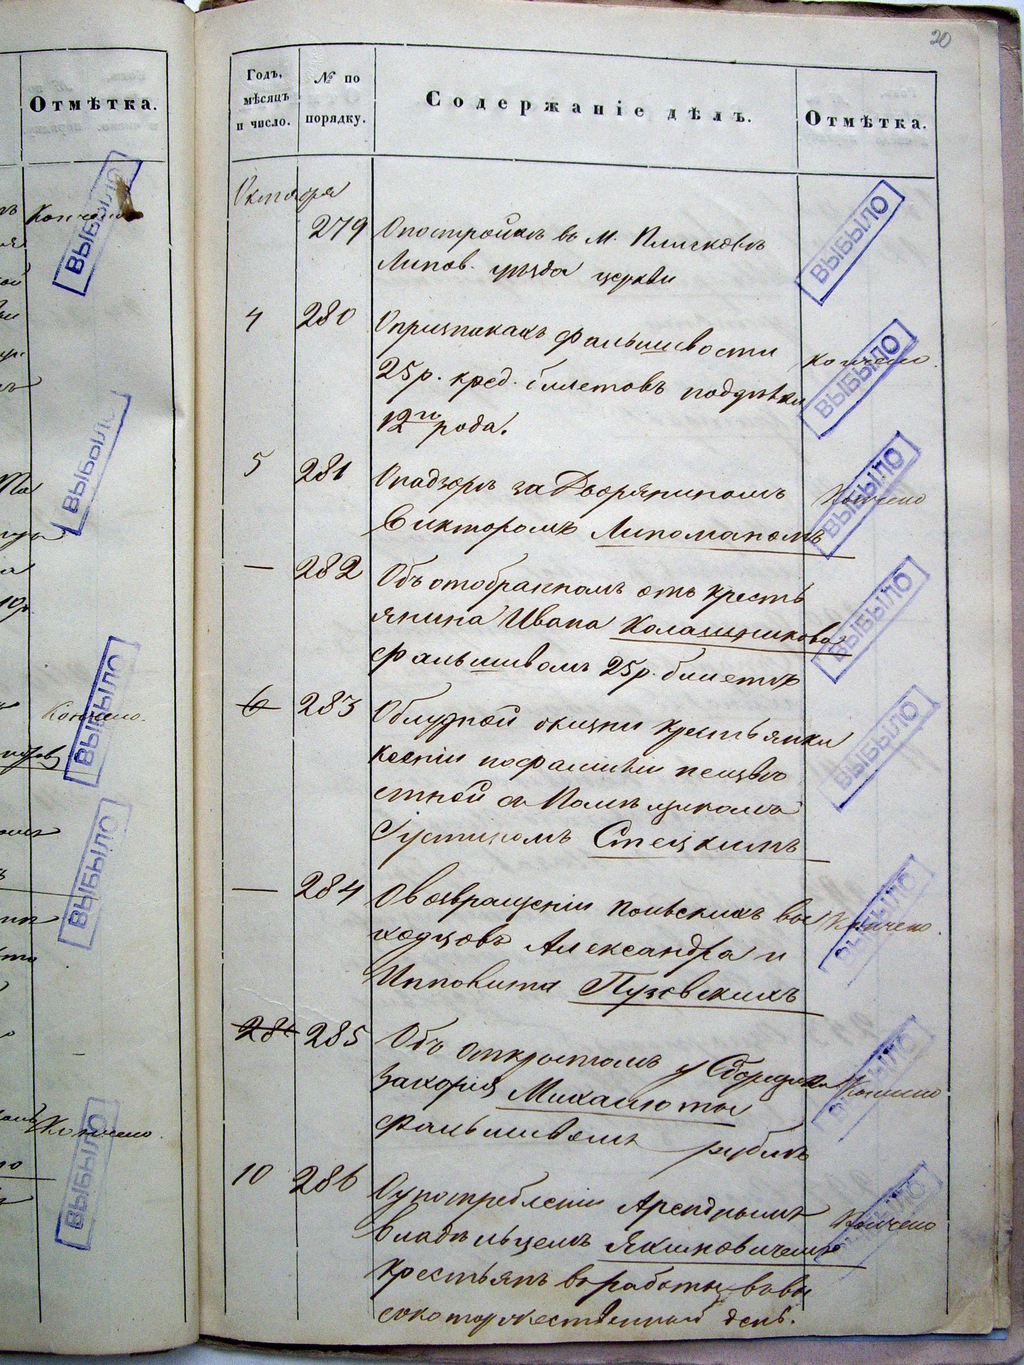 20
Отмѣтка.
Годъ, мѣсяцъ и число.
№ по порядку.
Содержаніе дѣлъ.
Отмѣтка.
Октября
279 О постройкѣ въ м. Плисковѣ
Липов. уѣзда церкви
ВЫБЫЛО
4 280 О признакахъ фальшивости
25 р. кред. билетовъ поддѣлки
12го рода.
Кончено
ВЫБЫЛО
5 281 О надзорѣ за Дворяниномъ
Викторомъ Липоманомъ
Кончено
ВЫБЫЛО
— 282 Объ отобранномъ отъ кресть
янина Ивана Калашникова
фальшивомъ 25 р. билетѣ
ВЫБЫЛО
6 283 О блудной жизни крестьянки
Ксеніи по фамиліи неизвѣ
стной съ Помѣщикомъ
Густиномъ Стецкимъ
ВЫБЫЛО
— 284 О возвращеніи Польскихъ вы
ходцовъ Александра и
Ипполита Пузовскихъ
Кончено.
ВЫБЫЛО
285 Объ открытомъ у
Захорія Михалюты
фальшивомъ рублѣ
Кончено
ВЫБЫЛО
10 286 О употребленіи Аренднымъ
владѣльцемъ Яхимовичемъ
крестьянъ въ работы въ вы
сокоторжественный день.
Кончено
ВЫБЫЛО
Кончено
ВЫБЫЛО
ВЫБЫЛО
Кончено.
ВЫБЫЛО
ВЫБЫЛО
Кончено.
ВЫБЫЛО